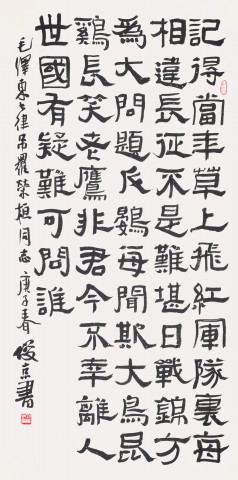 記得當年草上飛紅軍隊裏每
相違長征不是難堪日戰錦方
為大問題斥鷃每聞欺大鳥昆
鷄長笑老鷹非君今不幸離人
世國有疑難可問誰
毛澤東七律吊羅榮桓同志庚子春俊書